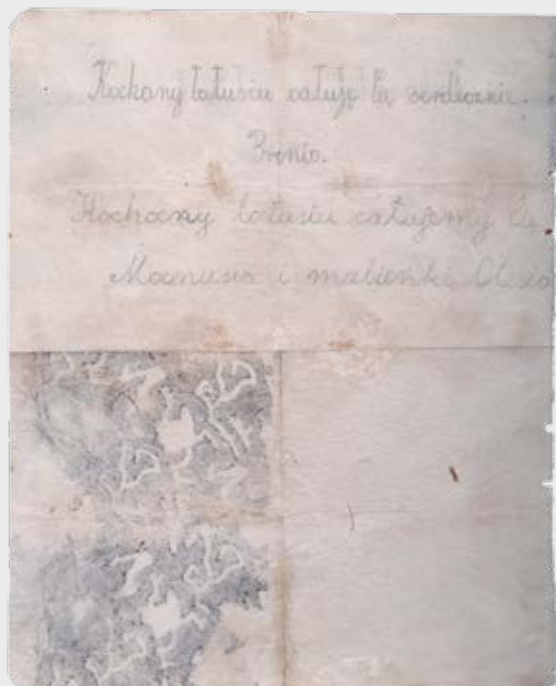 Kochany tatusiu całuję Cię serdecznie.
Brenio.
Kochany tatusiu całujemy Cię
Manusia i maleńki Olesio